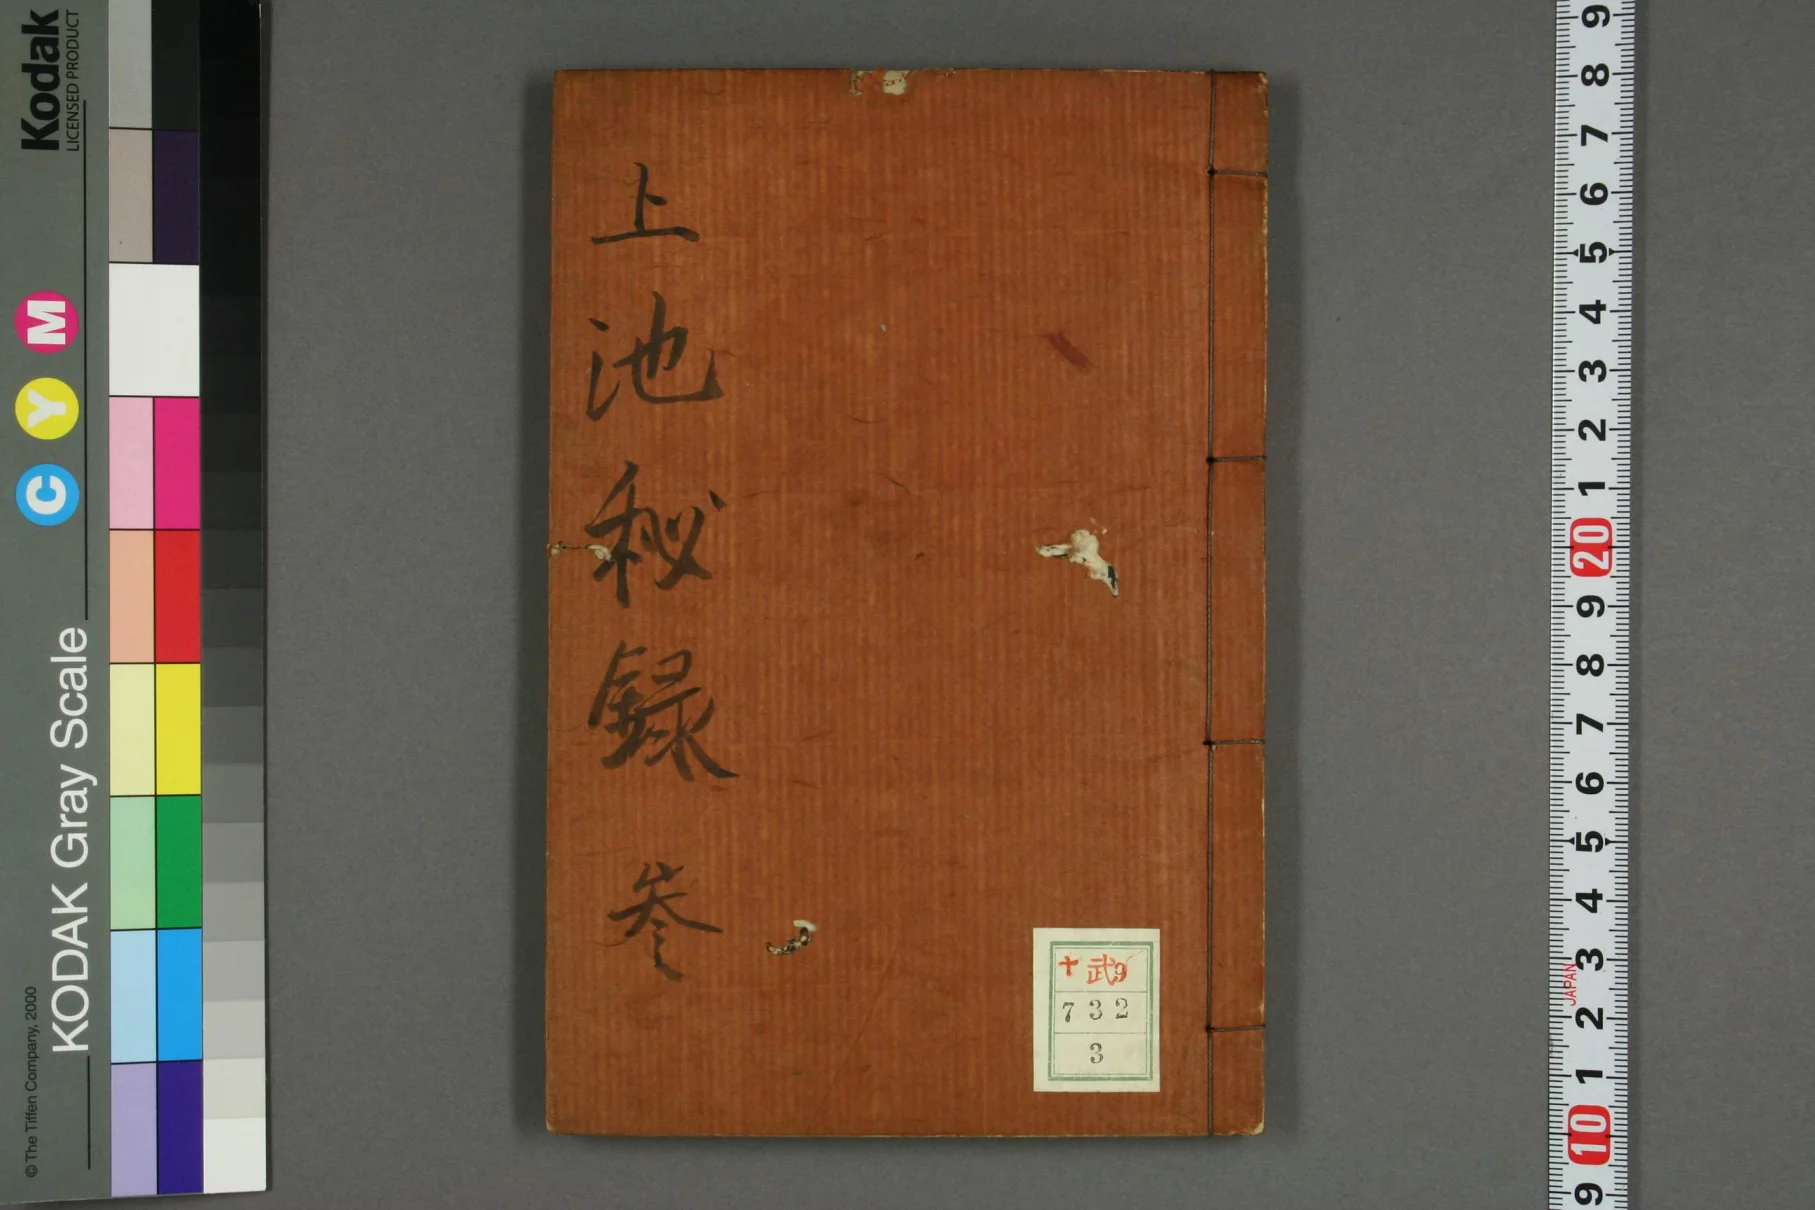 上池秘録 叁
十 武9
732
3
Kodak
LICENSED PRODUCT
C Y M
KODAK Gray Scale
© The Tiffen Company, 2000
9
8
7
6
5
4
3
2
1
20
9
8
7
6
5
4
3
JAPAN
2
1
10
9